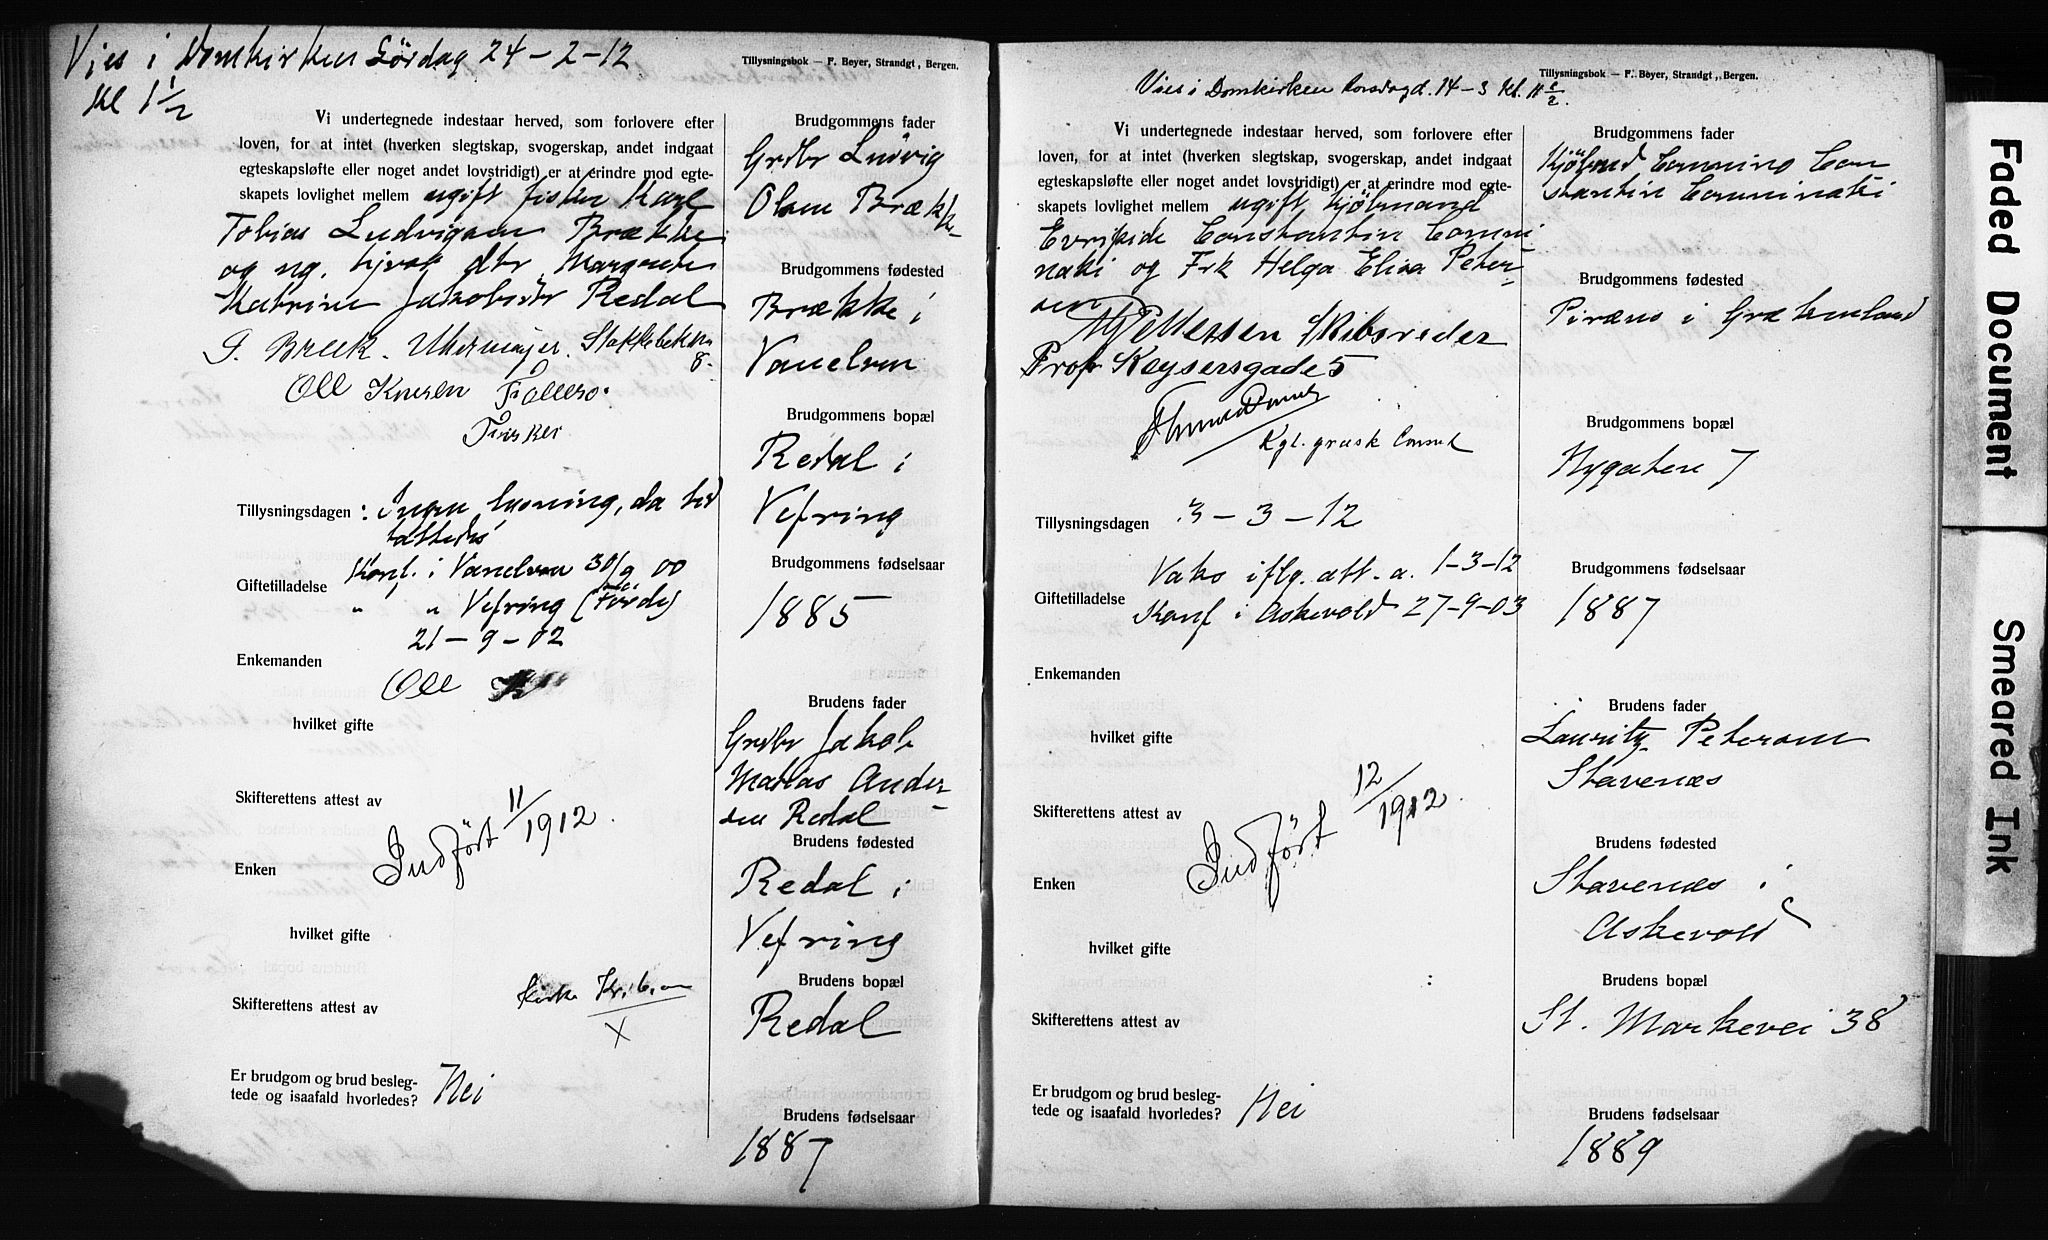 Vies i Domkirken Lördag 24-2-12
Kl 1 1/2
Tillysningsbok – F. Beyer, Strandgt, Bergen.
Vi undertegnede indestaar herved, som forlovere efter
loven, for at intet (hverken slegtskap, svogerskap, andet indgaat
egteskapsløfte eller noget andet lovstridigt) er at erindre mod egte-
skapets lovlighet mellem ugift fisker Karl
Tobias Ludvigsen Brække
og ug. Gjrdk dtr Margrete
Katrine Jakobsdtr Redal
Ole Knusen
Tillysningsdagen : Ingen lysning, da
Giftetilladelse Konf. i Vanelven 30/9 00
" " Vefring (Förde)
21-9-02
Enkemanden
Ole
hvilket gifte
Skifterettens attest av
Indført 11/1912.
Enken
hvilket gifte
Skifterettens attest av
X
Er brudgom og brud besleg-
tede og isaafald hvorledes? Nei
Brudgommens fader
Grdbr Ludvig
Olsen Brække
Brudgommens fødested
Brække i
Vanelven
Brudgommens bopæl
Redal i
Vefring
Brudgommens fødselsaar
1885
Brudens fader
Grdbr Jakob
Matias Ander-
sen Redal
Brudens fødested
Redal i
Vefring
Brudens bopæl
Redal
Brudens fødselsaar
1887
Tillysningsbok – F. Beyer, Strandgt., Bergen.
Vies i Domkirken Torsdag d. 14-3 Kl.
Vi undertegnede indestaar herved, som forlovere efter
loven, for at intet (hverken slegtskap, svogerskap, andet indgaat
egteskapsløfte eller noget andet lovstridigt) er at erindre mod egte-
skapets lovlighet mellem ugift Kjöbmand
Evripide Constantin Commi-
naki og Frk Helga Elisa Peter-
sen
Pettersen Skibsreder
Prof Keysersgade 5
Kgl. græsk Consul
Tillysningsdagen 3-3-12
Vaks iflg. att. a. 1-3-12
Giftetilladelse Konf i Askevold 27-9-03
Enkemanden
hvilket gifte
Skifterettens attest av
Indført 12/1912.
Enken
hvilket gifte
Skifterettens attest av
Er brudgom og brud besleg-
tede og isaafald hvorledes? Nei
Brudgommens fader
Kjöbmd Commino Con
stantin Comminaki
Brudgommens fødested
Piræus i Grækenland
Brudgommens bopæl
Nygaten 7
Brudgommens fødselsaar
1887
Brudens fader
Lauritz Petersen
Stavenæs
Brudens fødested
Stavenæs i
Askevold
Brudens bopæl
St. Markevei 38
Brudens fødselsaar
1889
Faded Document
Smeared Ink